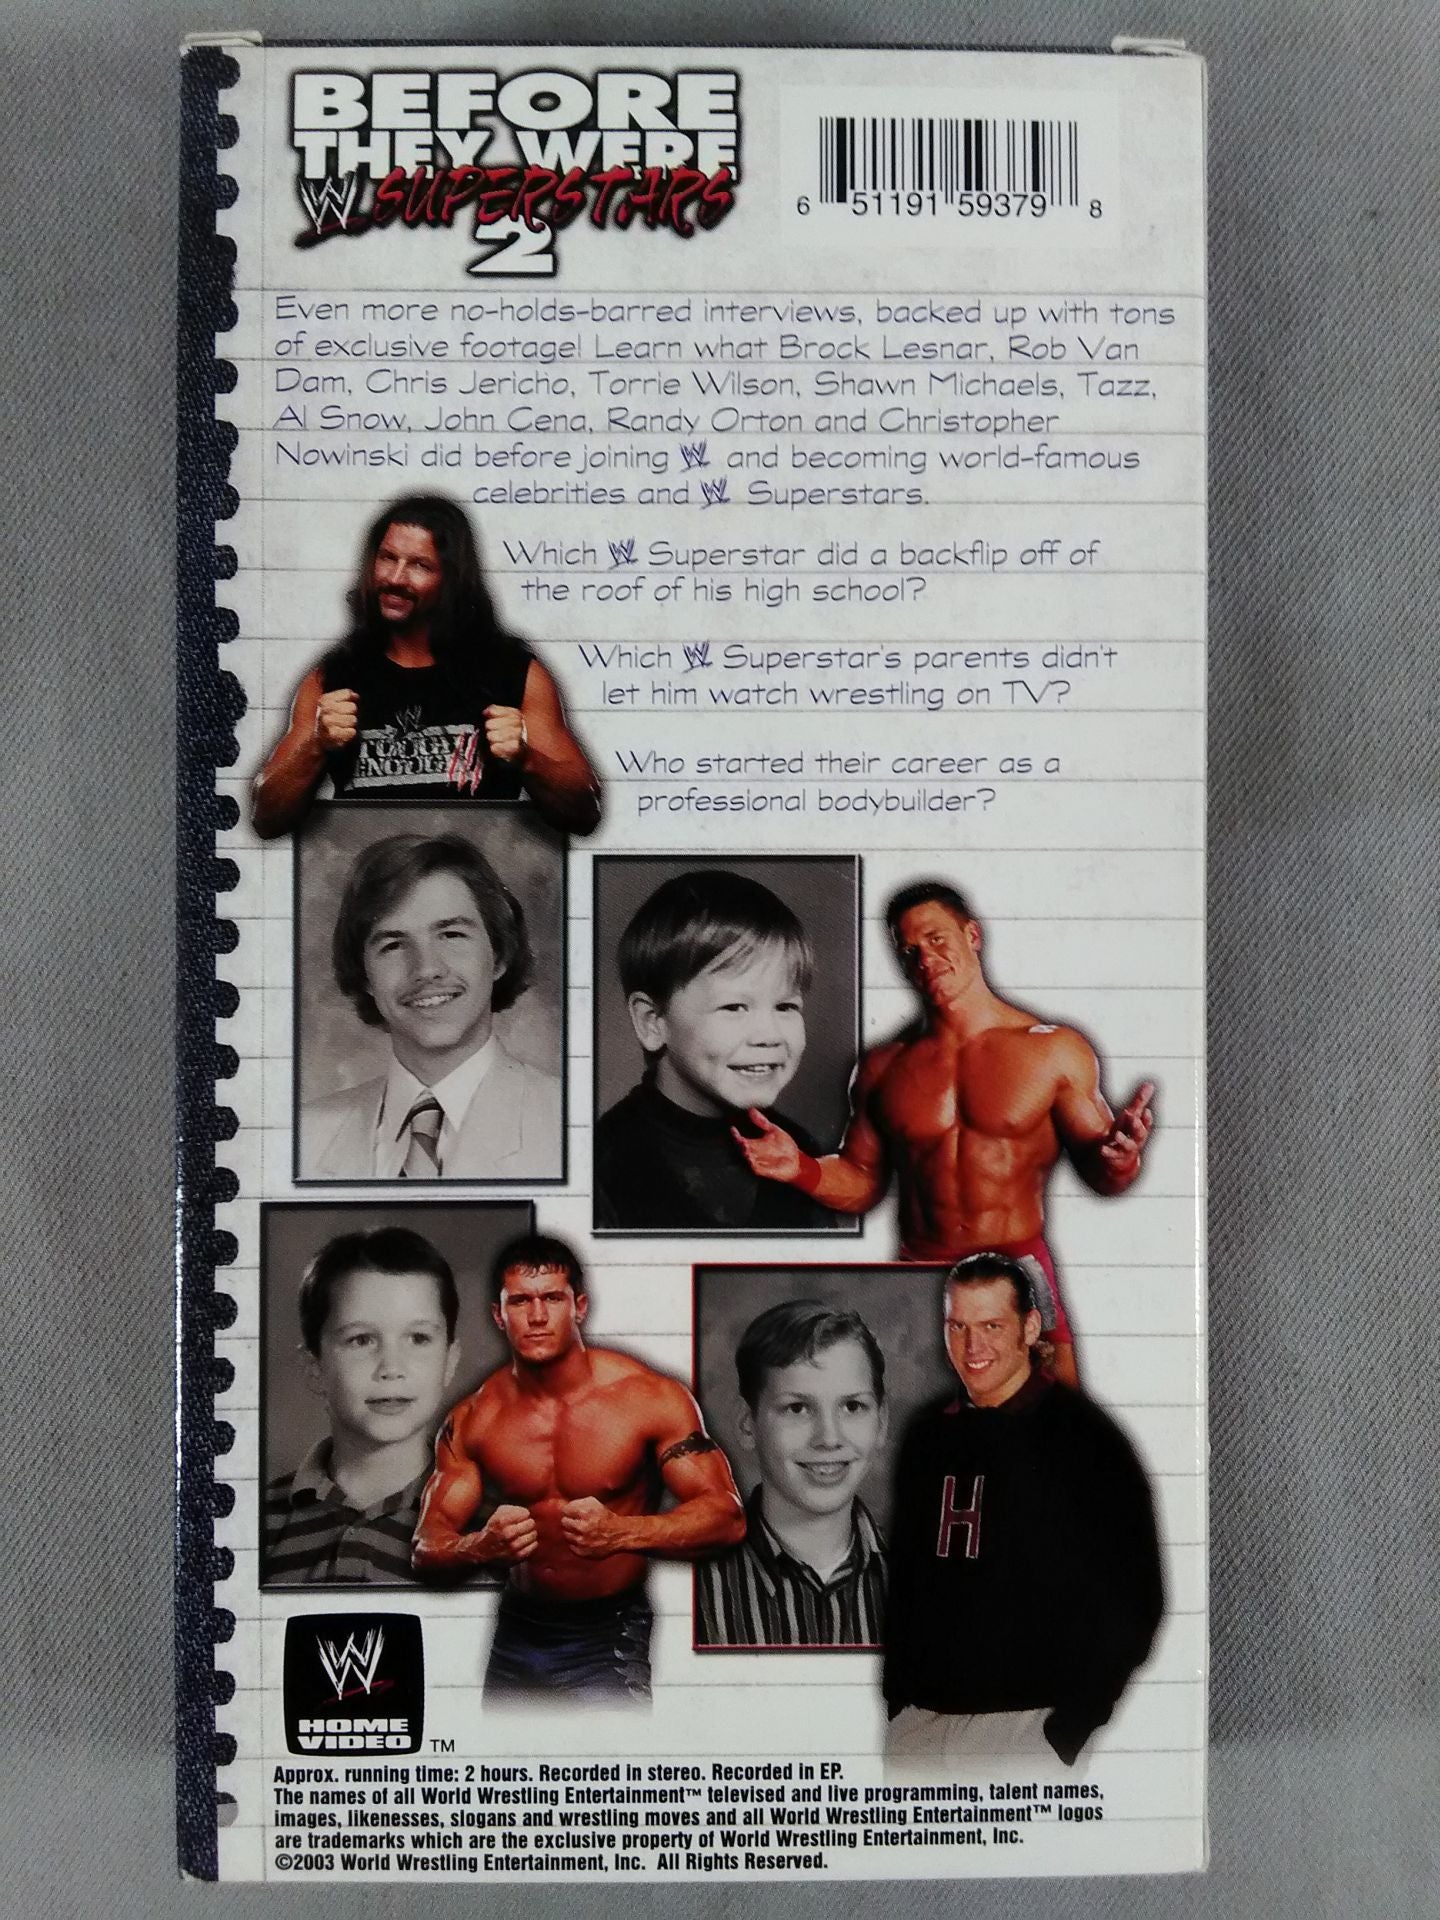 BEFORE
THEY WERE
W SUPERSTARS
2
6 51191 59379 8
Even more no-holds-barred interviews, backed up with tons
of exclusive footage! Learn what Brock Lesnar, Rob Van
Dam, Chris Jericho, Torrie Wilson, Shawn Michaels, Tazz,
Al Snow, John Cena, Randy Orton and Christopher
Nowinski did before joining W and becoming world-famous
celebrities and W Superstars.
Which W Superstar did a backflip off of
the roof of his high school?
Which W Superstar's parents didn't
let him watch wrestling on TV?
Who started their career as a
professional bodybuilder?
W
TOUGH
ENOUGH
H
W
HOME
VIDEO TM
Approx. running time: 2 hours. Recorded in stereo. Recorded in EP.
The names of all World Wrestling Entertainment™ televised and live programming, talent names,
images, likenesses, slogans and wrestling moves and all World Wrestling Entertainment™ logos
are trademarks which are the exclusive property of World Wrestling Entertainment, Inc.
©2003 World Wrestling Entertainment, Inc. All Rights Reserved.